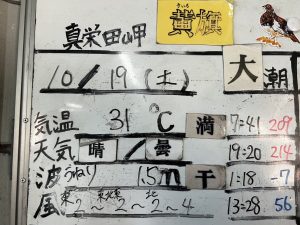 真栄田岬 黄旗
10/19(土) 大潮
気温 31℃ 満 7:41 209
天気 晴/曇 19:20 214
波 うねり 1.5m 干 1:18 -7
風 東2~東北東2~北2~4 13:28 56